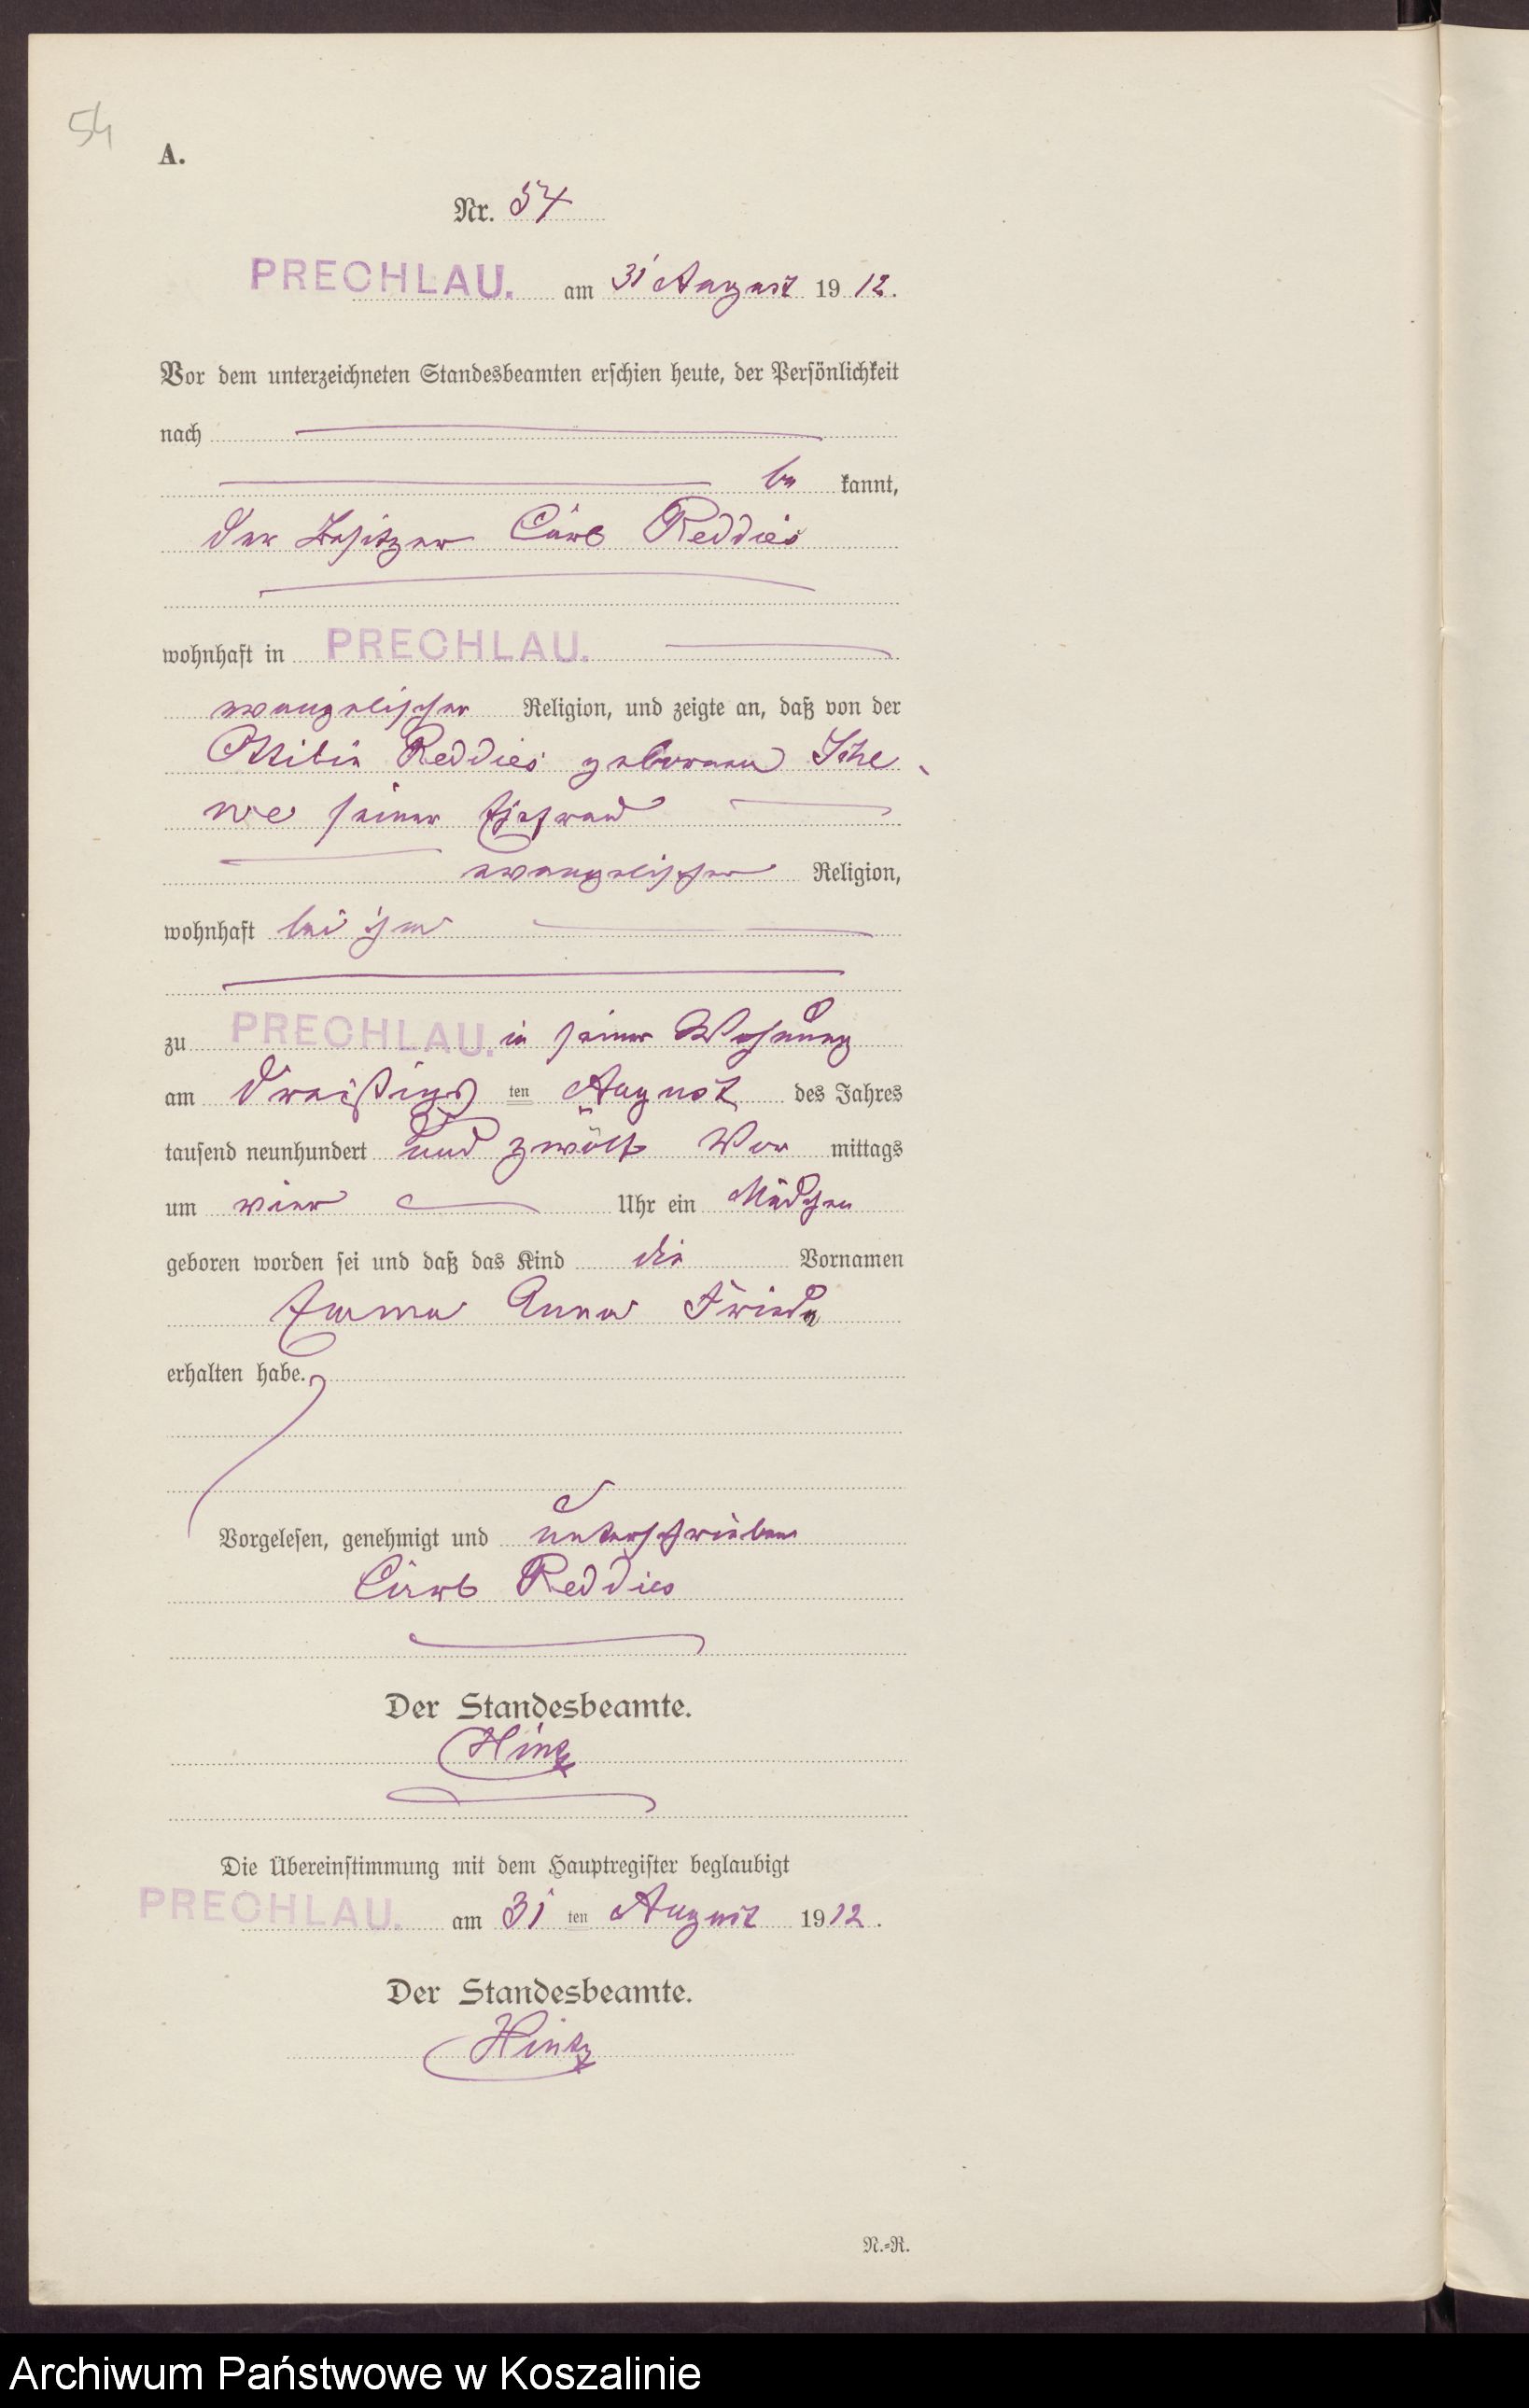 54
A.
Nr. 54
PRECHLAU. am 31 August 1912.
Vor dem unterzeichneten Standesbeamten erschien heute, der Persönlichkeit
nach
be kannt,
der Besitzer Curt Reddies
wohnhaft in PRECHLAU.
evangelischer Religion, und zeigte an, daß von der
Ottilie Reddies geborenen Sche
we seiner Ehefrau
evangelischer Religion,
wohnhaft bei ihm
zu PRECHLAU. in seiner Wohnung
am dreißigs ten August des Jahres
tausend neunhundert und zwölf Vor mittags
um vier Uhr ein Mädchen
geboren worden sei und daß das Kind die Vornamen
Emma Anna Frieda
erhalten habe.
Vorgelesen, genehmigt und unterschrieben
Curt Reddies
Der Standesbeamte.
Hintz
Die Übereinstimmung mit dem Hauptregister beglaubigt
PRECHLAU. am 31 ten August 1912.
Der Standesbeamte.
Hintz
N.-R.
Archiwum Państwowe w Koszalinie